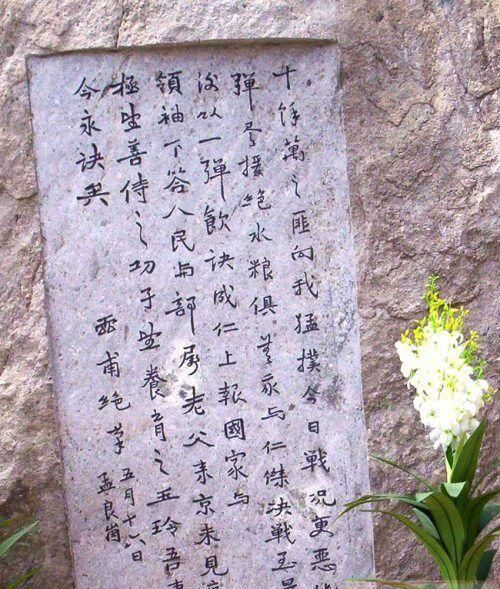 十餘萬之匪向我猛撲今日戰況更惡化
彈尽援絕水粮俱無我与仁傑決戰至最
後以一彈飲訣成仁上報國家与
領袖下答人民与部屬老父来京未見痛
極望善侍之幼子望養育之玉玲吾妻
今永訣矣
灵甫絕筆
五月十六日
孟良崮